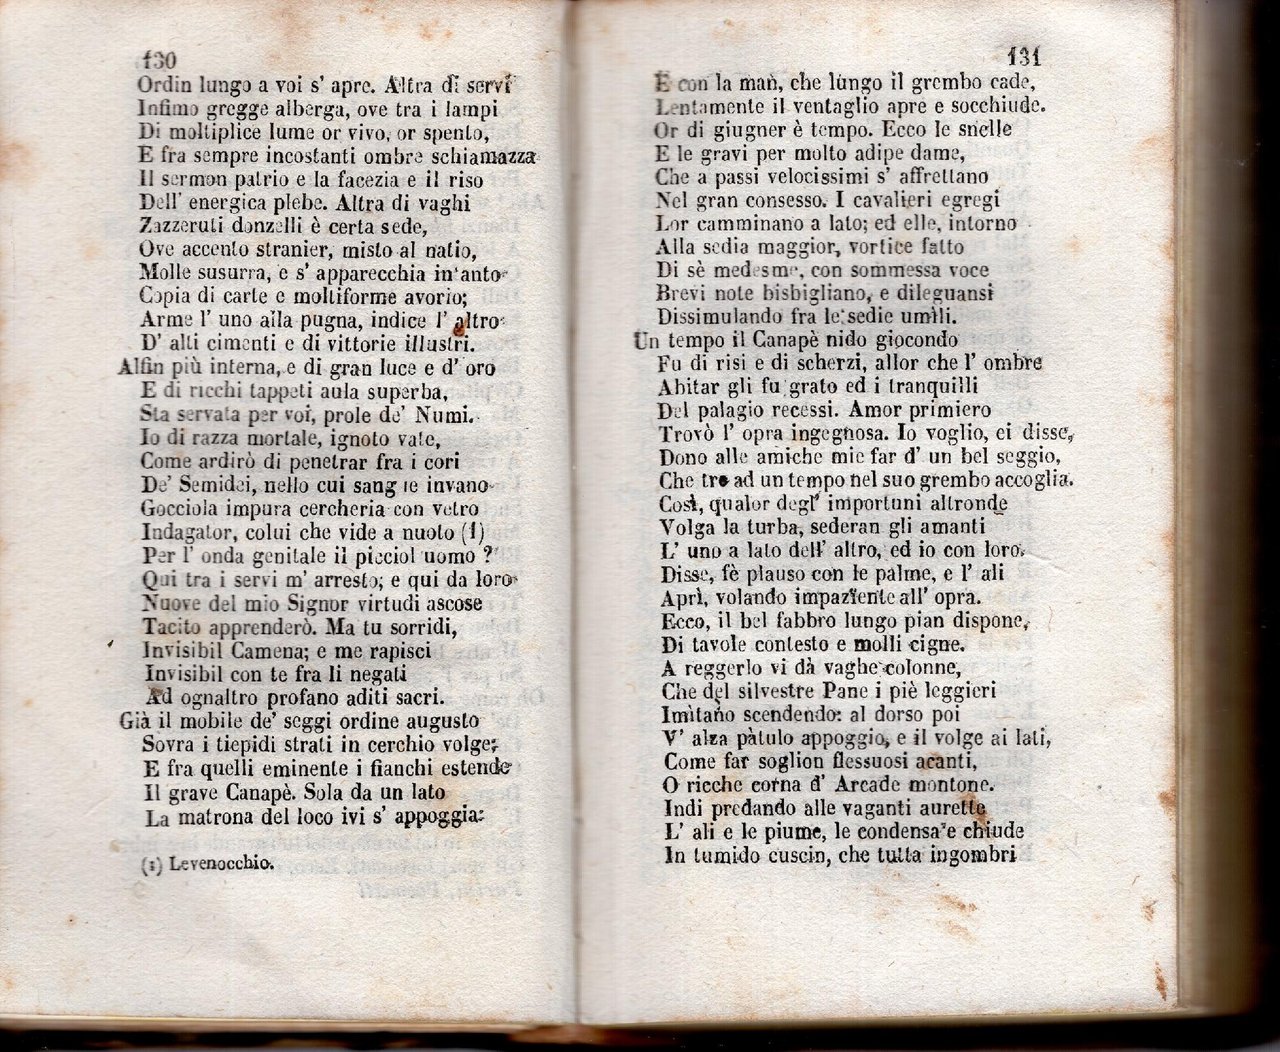 130
Ordin lungo a voi s' apre. Altra di servi
Infimo gregge alberga, ove tra i lampi
Di moltiplice lume or vivo, or spento,
E fra sempre incostanti ombre schiamazza
Il sermon patrio e la facezia e il riso
Dell' energica plebe. Altra di vaghi
Zazzeruti donzelli è certa sede,
Ove accento stranier, misto al natio,
Molle susurra, e s' apparecchia in'anto
Copia di carte e moltiforme avorio;
Arme l' uno alla pugna, indice l' altro
D' alti cimenti e di vittorie illustri.
Alfin più interna, e di gran luce e d' oro
E di ricchi tappeti aula superba,
Sta servata per voi, prole de' Numi.
Io di razza mortale, ignoto vate,
Come ardirò di penetrar fra i cori
De' Semidei, nello cui sang e invano
Gocciola impura cercheria con vetro
Indagator, colui che vide a nuoto (1)
Per l' onda genitale il picciol uomo ?
Qui tra i servi m' arresto; e qui da loro
Nuove del mio Signor virtudi ascose
Tacito apprenderò. Ma tu sorridi,
Invisibil Camena; e me rapisci
Invisibil con te fra li negati
Ad ognaltro profano aditi sacri.
Già il mobile de' seggi ordine augusto
Sovra i tiepidi strati in cerchio volge;
E fra quelli eminente i fianchi estende
Il grave Canapè. Sola da un lato
La matrona del loco ivi s' appoggia:
(1) Levenocchio.
131
E con la man, che lungo il grembo cade,
Lentamente il ventaglio apre e socchiude.
Or di giugner è tempo. Ecco le snelle
E le gravi per molto adipe dame,
Che a passi velocissimi s' affrettano
Nel gran consesso. I cavalieri egregi
Lor camminano a lato; ed elle, intorno
Alla sedia maggior, vortice fatto
Di sè medesme, con sommessa voce
Brevi note bisbigliano, e dileguansi
Dissimulando fra le sedie umìli.
Un tempo il Canapè nido giocondo
Fu di risi e di scherzi, allor che l' ombre
Abitar gli fu grato ed i tranquilli
Del palagio recessi. Amor primiero
Trovò l' opra ingegnosa. Io voglio, ei disse,
Dono alle amiche mie far d' un bel seggio,
Che tre ad un tempo nel suo grembo accoglia.
Così, qualor degl' importuni altronde
Volga la turba, sederan gli amanti
L' uno a lato dell' altro, ed io con loro.
Disse, fè plauso con le palme, e l' ali
Aprì, volando impaziente all' opra.
Ecco, il bel fabbro lungo pian dispone,
Di tavole contesto e molli cigne.
A reggerlo vi dà vaghe colonne,
Che del silvestre Pane i piè leggieri
Imitano scendendo: al dorso poi
V' alza pàtulo appoggio, e il volge ai lati,
Come far soglion flessuosi acanti,
O ricche corna d' Arcade montone.
Indi predando alle vaganti aurette
L' ali e le piume, le condensa e chiude
In tumido cuscin, che tutta ingombri